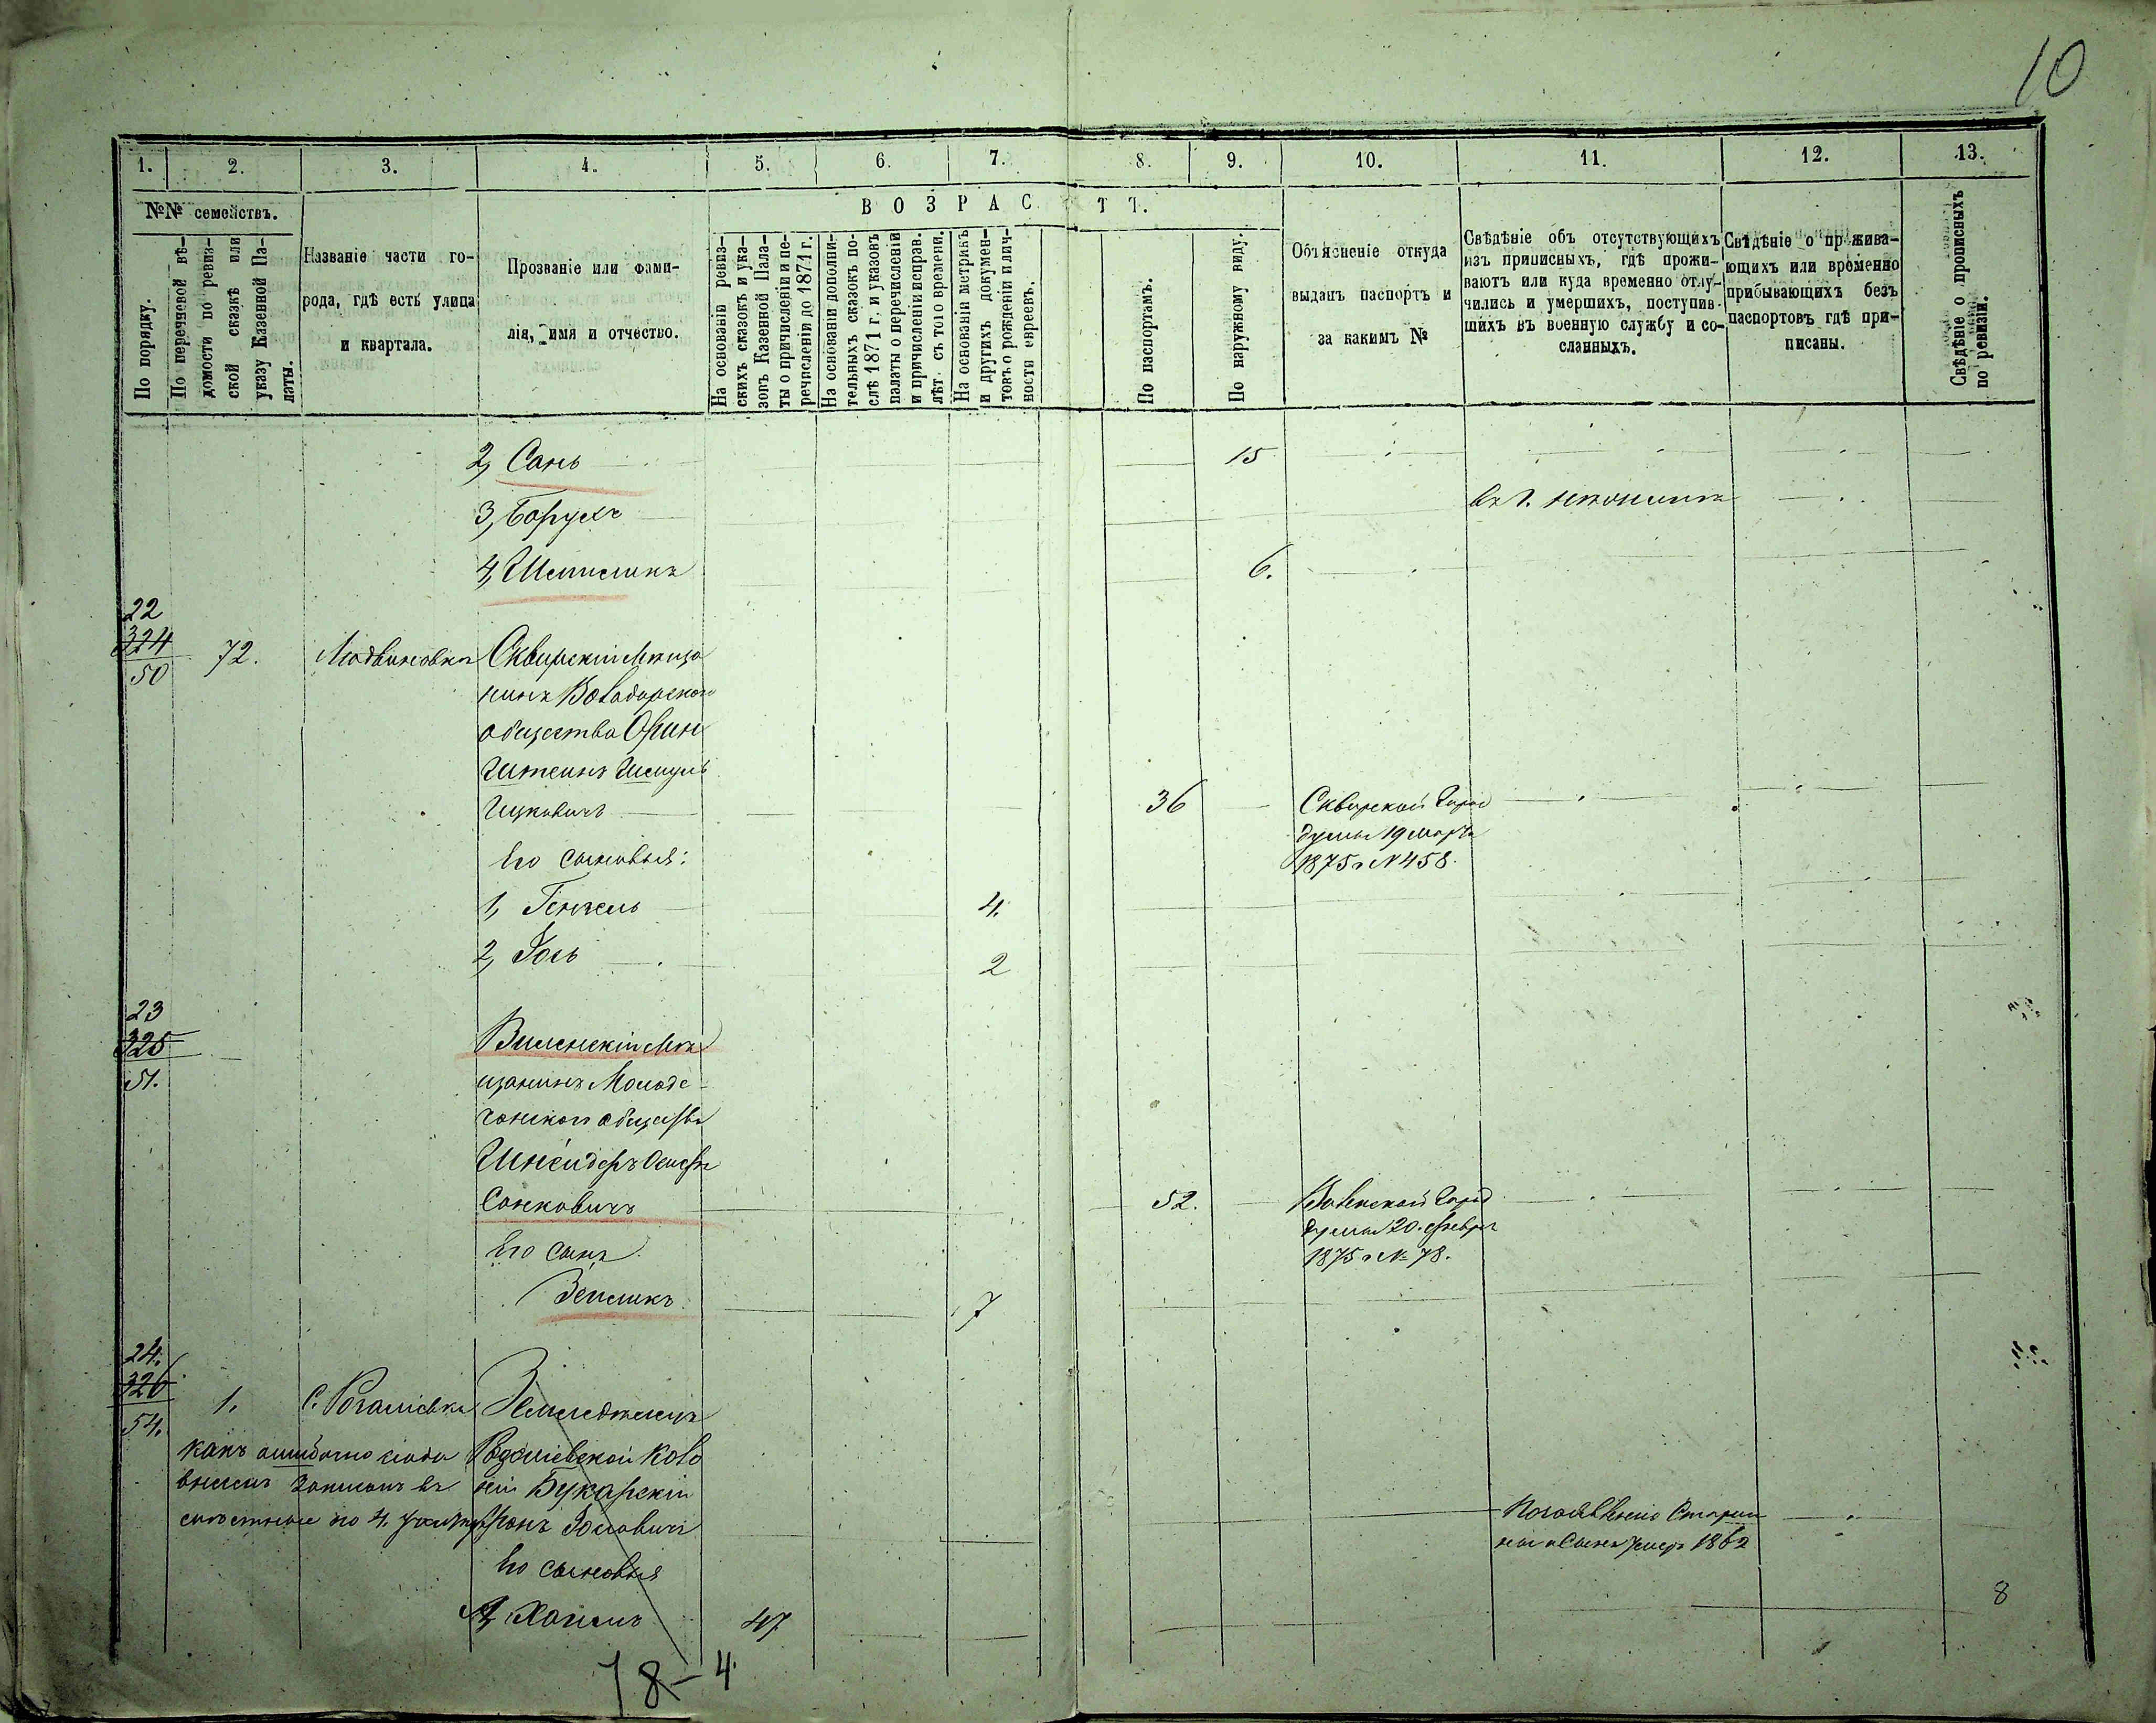 10
1. 2. 3. 4. 5. 6. 7. 8. 9. 10. 11. 12. 13.
№№ семействъ.
По порядку.
По перечневой вѣ-
домости по ревиз-
ской сказкѣ или
указу Казенной Па-
латы.
Названіе части го-
рода, гдѣ есть улица
и квартала.
Прозваніе или фами-
лія, имя и отчество.
ВОЗРАСТЪ.
На основаніи ревиз-
скихъ сказокъ и ука-
зовъ Казенной Пала-
ты о причисленіи и пе-
речисленіи до 1871 г.
На основаніи дополни-
тельныхъ сказокъ по-
слѣ 1871 г. и указовъ
палаты о перечисленіи
и причисленіи исправ.
лѣт. съ того времени.
На основаніи метрикъ
и другихъ докумен-
товъ о рожденіи и лич-
ности евреевъ.
По паспортамъ.
По наружному виду.
Объясненіе откуда
выданъ паспортъ и
за какимъ №
Свѣдѣніе объ отсутствующихъ
изъ приписныхъ, гдѣ прожи-
ваютъ или куда временно отлу-
чились и умершихъ, поступив-
шихъ въ военную службу и со-
сланныхъ.
Свѣдѣніе о прожива-
ющихъ или временно
прибывающихъ безъ
паспортовъ гдѣ при-
писаны.
Свѣдѣніе о прописныхъ
по ревизіи.
2, Сань 15
3, Борухъ
4, 6.
22
324
50 72. Людвиновка Сквирскій мѣща
нинъ
общества
Штеинъ Шмуль
Ицковичъ 36 Сквирской Город
Его сыновья: думы 19 марта
1875 г № 458.
1, Генхель 4.
2, Іось 2
23
325
51. Виленскій мѣ
щанинъ Молоде-
чанскаго общества
Шнейдеръ
Сонковичъ 52. Город
Его сынъ думы 20. февра
1875 г № 78.
Зелликъ 7
24.
326
54. 1. Земледѣлецъ
какъ ошибочно сюда коло
внесенъ записанъ въ ніи Букарскій
по 4. Іосіовичъ
старши
Его сыновья умеръ 1862
1, Хаимъ 47 8
78-4.